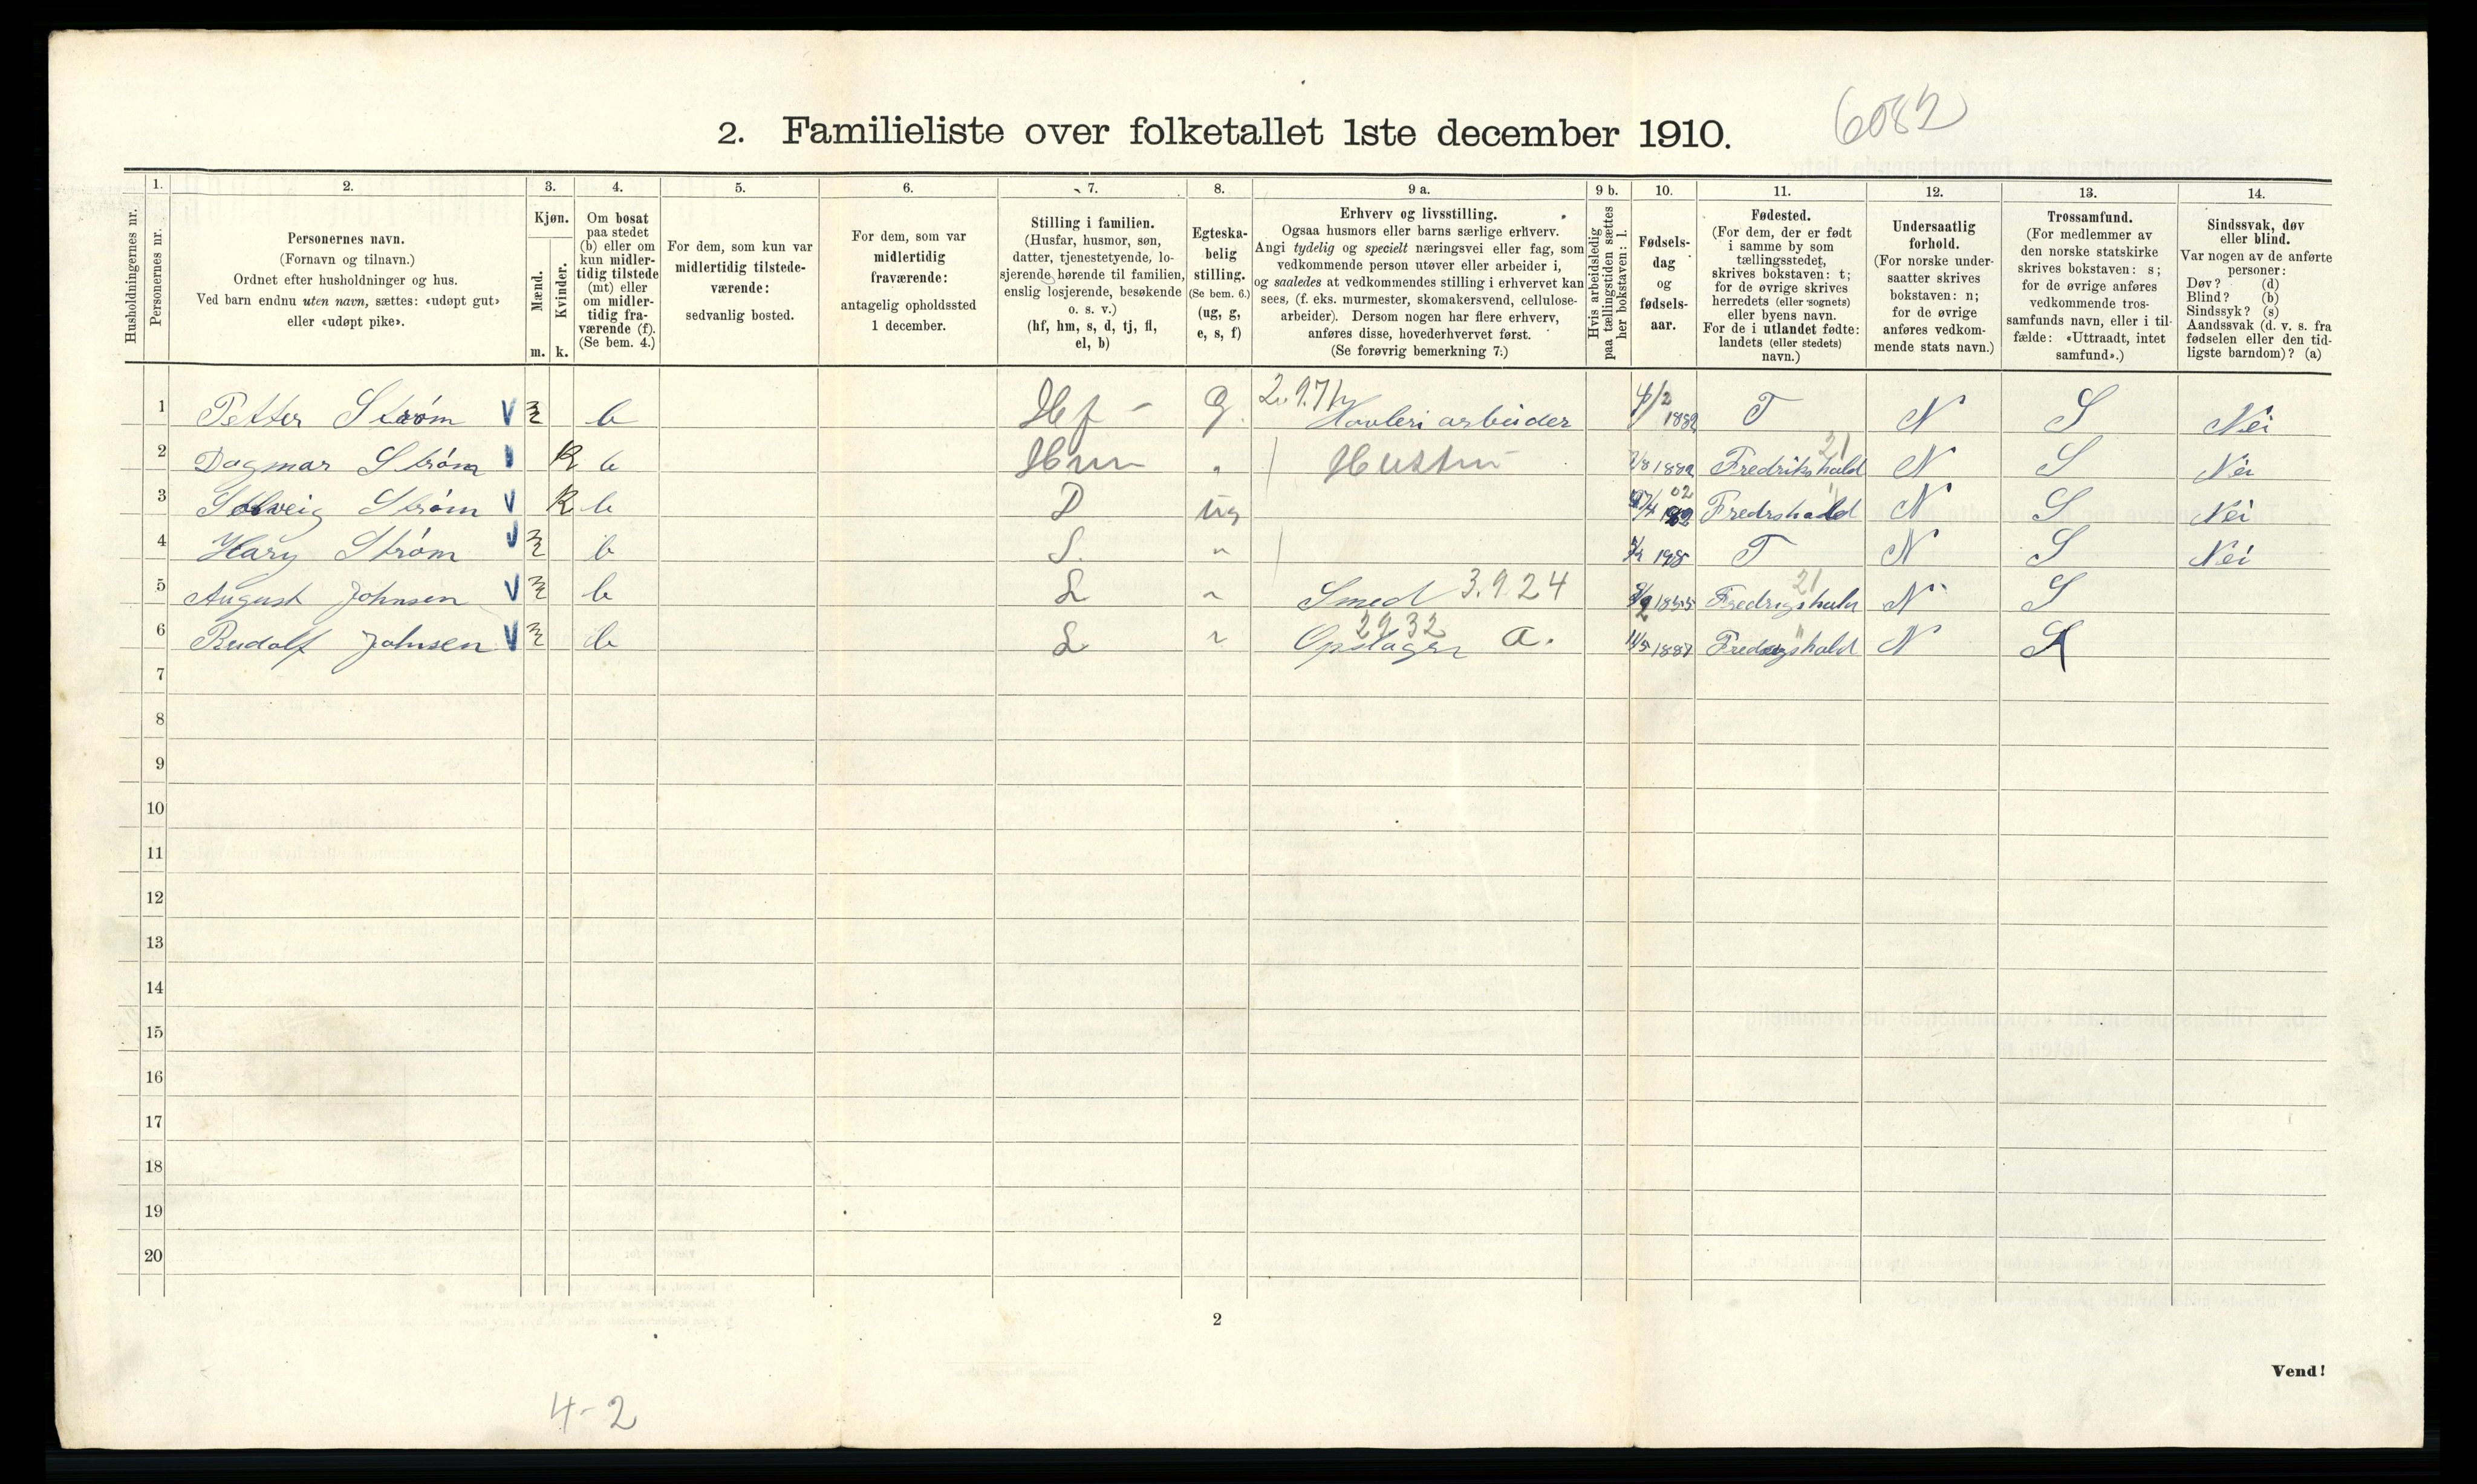 2. Familieliste over folketallet 1ste december 1910.
6082
1. 2. 3. 4. 5. 6. 7. 8. 9 a. 9 b. 10. 11. 12. 13. 14.
Husholdningernes nr.
Personernes nr.
Personernes navn.
(Fornavn og tilnavn.)
Ordnet efter husholdninger og hus.
Ved barn endnu uten navn, sættes: «udøpt gut»
eller «udøpt pike».
Kjøn.
Mænd.
Kvinder.
m. k.
Om bosat
paa stedet
(b) eller om
kun midler-
tidig tilstede
(mt) eller
om midler-
tidig fra-
værende (f).
(Se bem. 4.)
For dem, som kun var
midlertidig tilstede-
værende:
sedvanlig bosted.
For dem, som var
midlertidig
fraværende:
antagelig opholdssted
1 december.
Stilling i familien.
(Husfar, husmor, søn,
datter, tjenestetyende, lo-
sjerende hørende til familien,
enslig losjerende, besøkende
o. s. v.)
(hf, hm, s, d, tj, fl,
el, b)
Egteska-
belig
stilling.
(Se bem. 6.)
(ug, g,
e, s, f)
Erhverv og livsstilling.
Ogsaa husmors eller barns særlige erhverv.
Angi tydelig og specielt næringsvei eller fag, som
vedkommende person utøver eller arbeider i,
og saaledes at vedkommendes stilling i erhvervet kan
sees, (f. eks. murmester, skomakersvend, cellulose-
arbeider). Dersom nogen har flere erhverv,
anføres disse, hovederhvervet først.
(Se forøvrig bemerkning 7.)
Hvis arbeidsledig
paa tællingstiden sættes
her bokstaven: l.
Fødsels-
dag
og
fødsels-
aar.
Fødested.
(For dem, der er født
i samme by som
tællingsstedet,
skrives bokstaven: t;
for de øvrige skrives
herredets (eller sognets)
eller byens navn.
For de i utlandet fødte:
landets (eller stedets)
navn.)
Undersaatlig
forhold.
(For norske under-
saatter skrives
bokstaven: n;
for de øvrige
anføres vedkom-
mende stats navn.)
Trossamfund.
(For medlemmer av
den norske statskirke
skrives bokstaven: s;
for de øvrige anføres
vedkommende tros-
samfunds navn, eller i til-
fælde: «Uttraadt, intet
samfund».)
Sindssvak, døv
eller blind.
Var nogen av de anførte
personer:
Døv? (d)
Blind? (b)
Sindssyk? (s)
Aandssvak (d. v. s. fra
fødselen eller den tid-
ligste barndom)? (a)
1 Petter Strøm V m b Hf - g. Høvleri arbeider 1882 T N S Nei
2 Dagmar Strøm K b Hm " Hustru Fredrikshald 21 N S Nei
3 Solveig Strøm V K b D ug 02 Fredrshald " N S Nei
4 Hary Strøm V m b S. " T N S Nei
5 August Johnsen V m b L " Smed 3.9.24 1855 21 N S
6 Rudolf Johnsen V m b L " 2932 a. 11/5 1887 " N S
7
8
9
10
11
12
13
14
15
16
17
18
19
20
2
Vend!
4-2